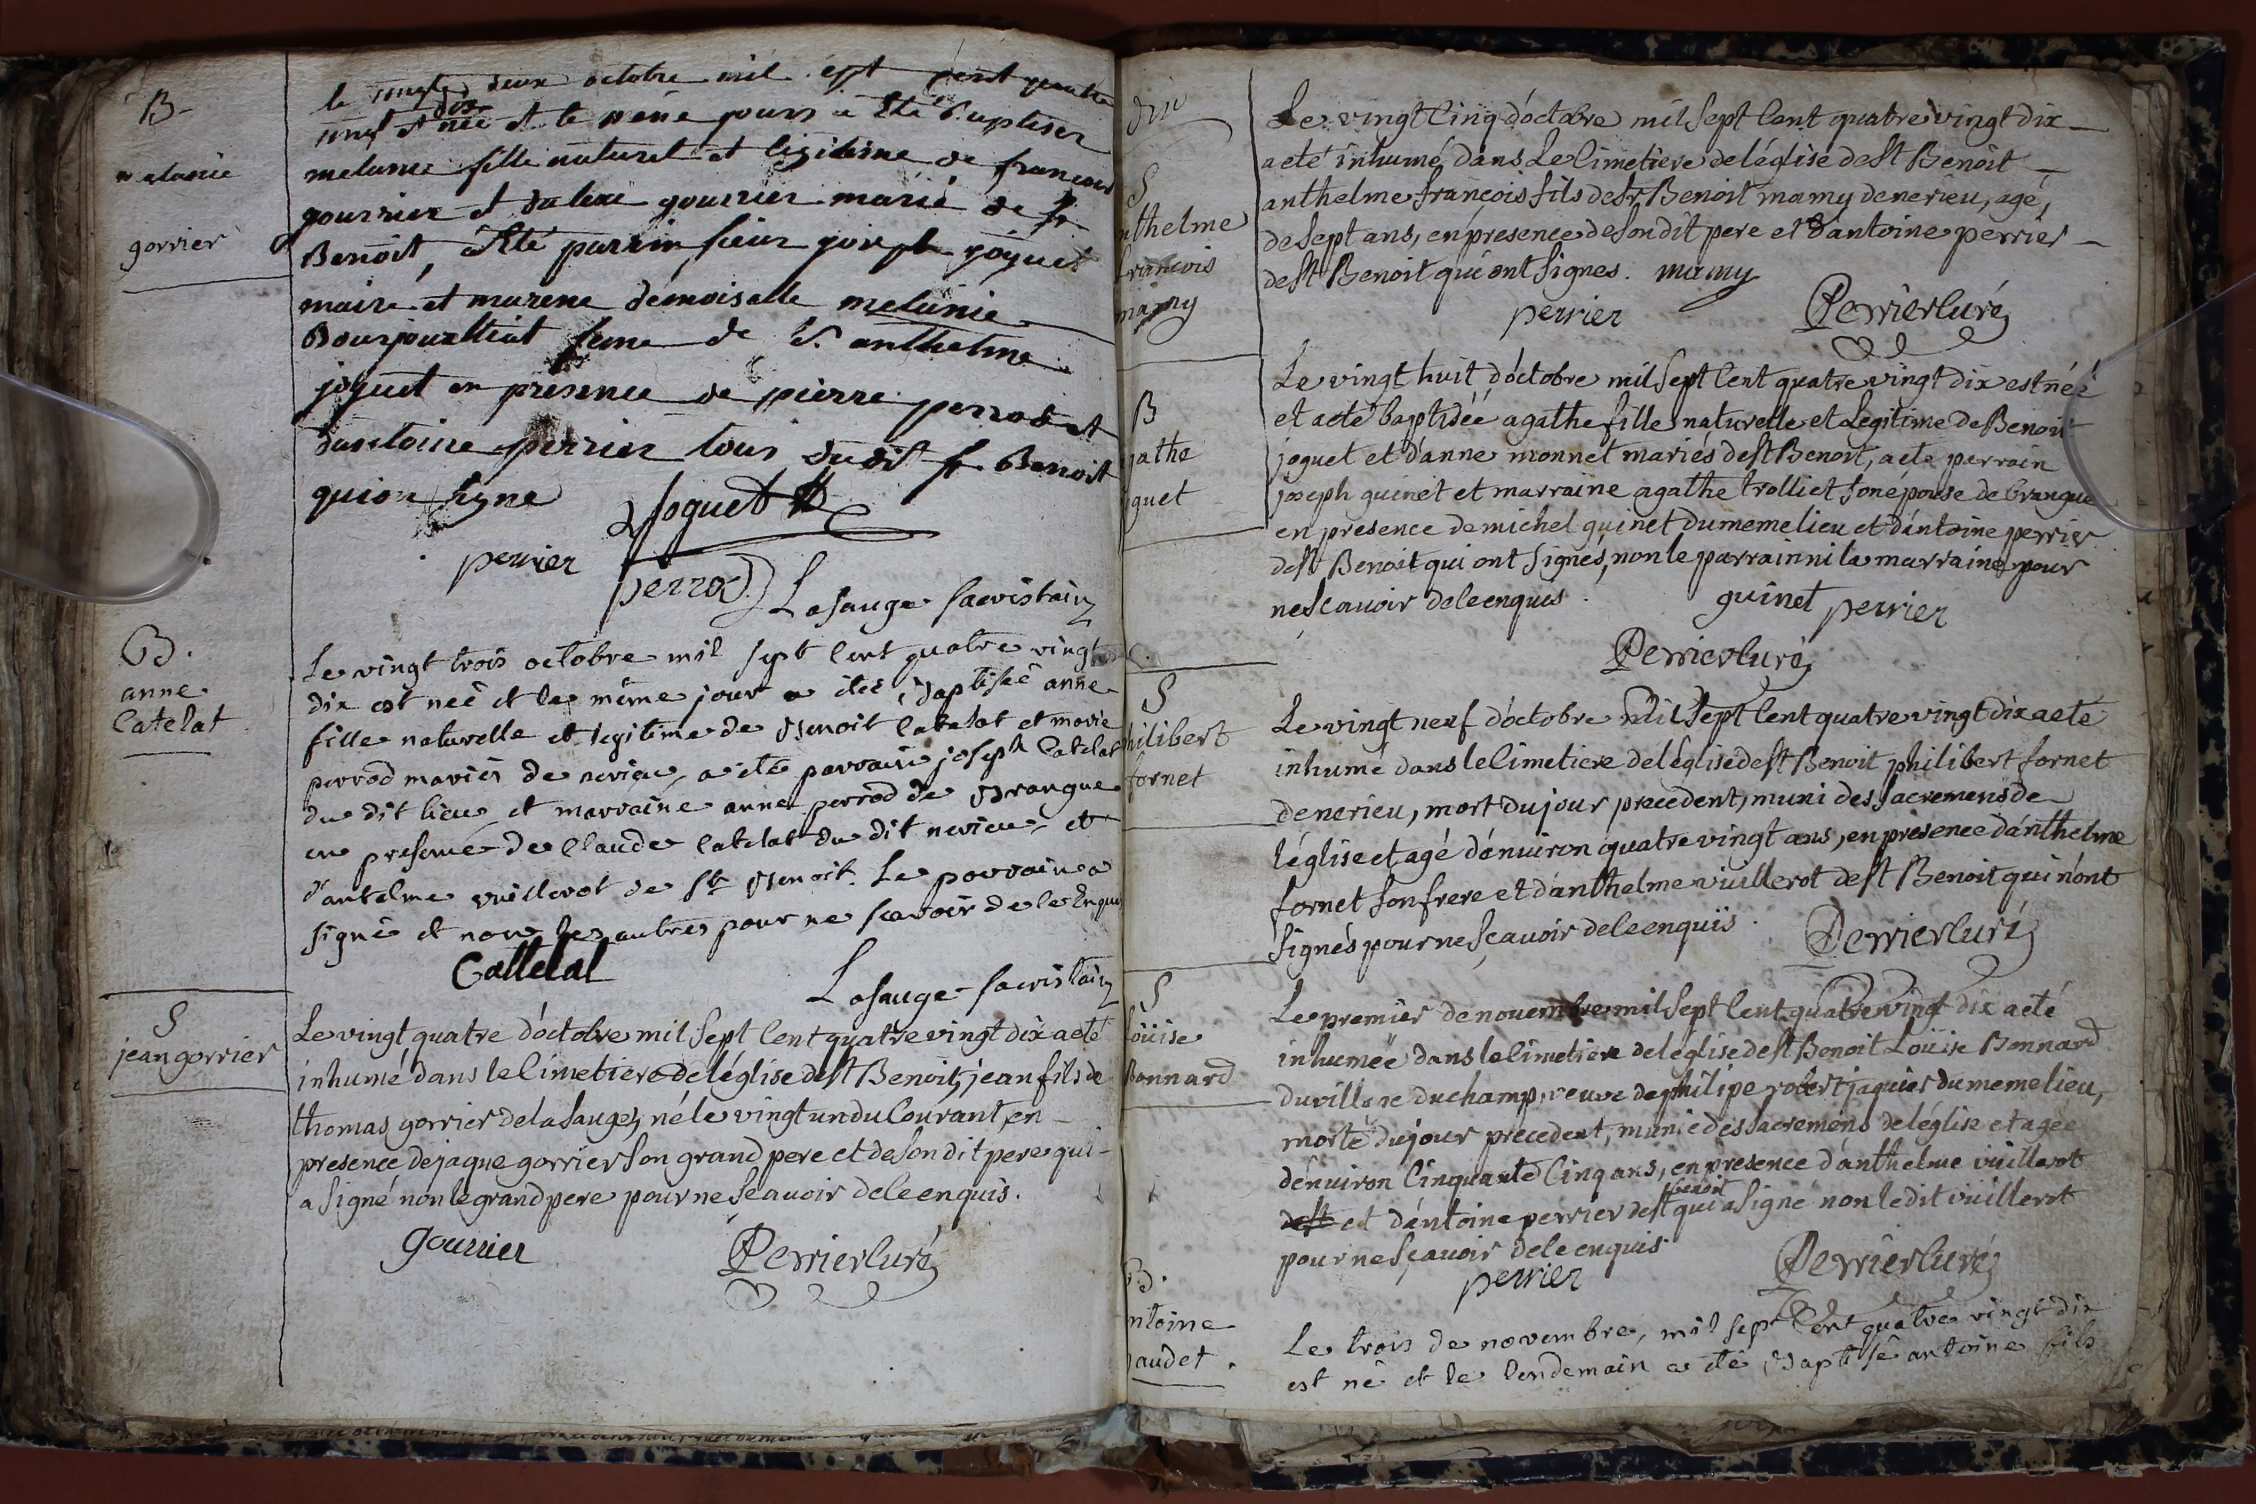 B
melanie
gorrier
le vingt deux octobre mil sept cent quatre
vingt dix est née et le même jours a été baptiser
melanie fille naturel et legitime de francois
gourrier et marié de st
Benoit, a été parrin sieur joseph joguet
maire et marene demoiselle melanie
feme de Sr anthelme
joguet en presence de pierre perrod et
dantoine perrier tous dudit st Benoit
qui on signe
Joguet
perrier
perrod
Lasauge sacristain
B.
anne
Catelat
Le vingt trois octobre mil sept cent quatre vingt
dix est neé et le même jour a été Baptiseé anne
fille naturelle et legitime de Benoit Catelat et marie
perrod mariés de nerieu, a été parrain joseph Catelat
du dit lieu et marraine anne perrod de Brangue
en presence de Claude Catelat du dit nerieu, et
d'antelme vuillerot de St Benoit. Le parrain a
signé et non les autres pour ne scavoir de le enquis
Cattelat
Lasauge sacristain
S
jean gorrier
Le vingt quatre d'octobre mil sept cent quatre vingt dix a eté
inhumé dans le cimetiere de léglise de st Benoit, jean fils de
thomas gorrier de la sauge, né le vingt un du Courant, en
presence de jaque gorrier son grand pere et de son dit pere qui
a signé non le grand pere pour ne scavoir de le enquis.
gourrier
Perrier curé
S
nthelme
francois
mamy
Le vingt cinq d'octobre mil sept cent quatre vingt dix
a eté inhumé dans le cimetiere de léglise de st Benoit
anthelme françois fils de sr Benoit mamy de nerieu, agé,
de sept ans, en presence de son dit pere et d'antoine perrier
de st Benoit qui ont signes. mamy
perrier
Perrier curé
B
gathe
guet
Le vingt huit d'octobre mil sept cent quatre vingt dix est née
et a eté baptisée agathe fille naturelle et legitime de Benoit
joguet et d'anne monnet mariés de st Benoit, a ete parrain
joseph guinet et marraine agathe trolliet son épouse de brangue
en presence de michel guinet du meme lieu et d'antoine perrier
de st Benoit qui ont signés, non le parrain ni la marraine pour
ne scavoir de le enquis.
guinet perrier
Perrier curé
S
hilibert
fornet
Le vingt neuf d'octobre mil sept cent quatre vingt dix a eté
inhumé dans le cimetiere de léglise de st Benoit philibert fornet
de nerieu, mort du jour precedent, muni des sacremens de
léglise et agé d'environ quatre vingt ans, en presence d'anthelme
fornet son frere et d'anthelme vuillerot de st Benoit qui n'ont
signés pour ne sçavoir de le enquis.
Perrier curé
S
loüise
Bonnard
Le premier de novembre mil sept cent quatre vingt dix a eté
inhumeé dans le cimetiere de léglise de st Benoit Loüise Bonnard
du villare du champ, veuve de philipe robert jaquier du meme lieu,
morte du jour precedent, munie des sacremens de léglise et agée
d'environ cinquante cinq ans, en presence d'anthelme vuillerot
de st et d'antoine perrier de st benoit qui a signé non le dit vuillerot
pour ne sçavoir de le enquis
perrier
Perrier curé
B.
ntoine
audet.
Le trois de novembre, mil sept cent quatre vingt dix
est né et le lendemain a été Baptisé antoine fils